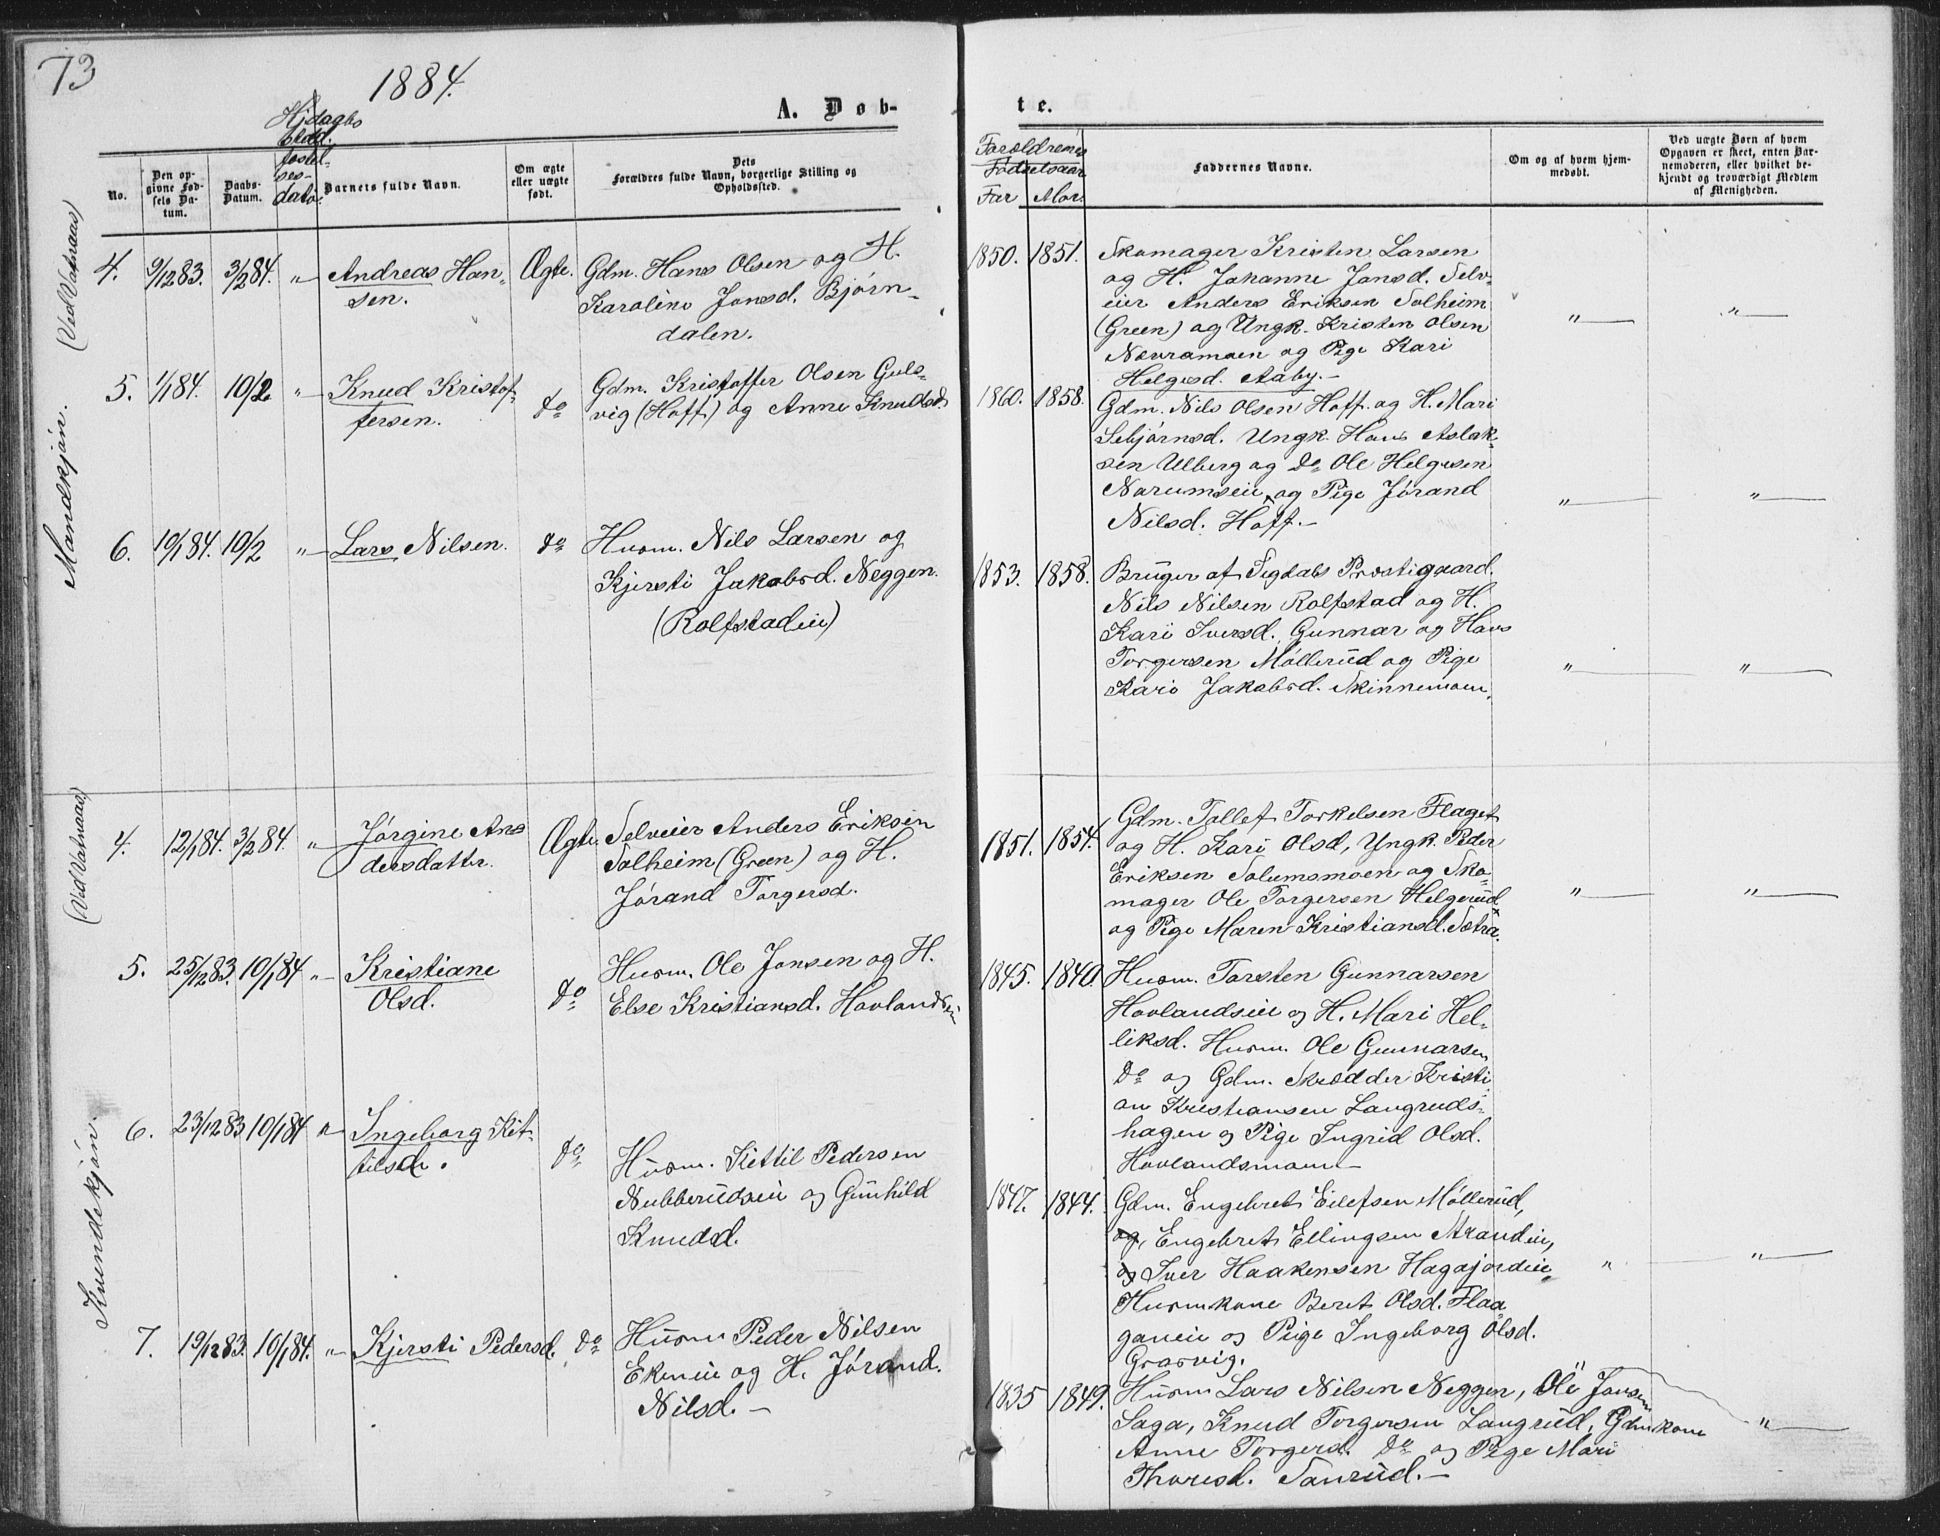 73
1884.
A. Døb-
te.
Hjdagbs
bekl.
fostel-
ses-
dato.
No.
Den op-
givne Fød-
sels Da-
tum.
Daabs-
Datum.
Barnets fulde Navn.
Om ægte
eller uægte
født.
Dets
Forældres fulde Navn, borgerlige Stilling og
Opholdssted.
Forældrenes
Fødselsaar
Far Mor.
Faddernes Navne.
Om og af hvem hjem-
medøbt.
Ved uægte Børn af hvem
Opgaven er skeet, enten Bar-
nemoderen, eller hvilket be-
kjendt og troværdigt Medlem
af Menigheden.
Mandkjøn. (Ved Vatnaas)
4. 9/12 83. 3/2 84. " Andreas Han-
sen.
Ægte.
Gdm. Hans Olsen og H.
Karoline Jonsd. Bjørn-
dalen.
1850. 1851.
Skomager Kristen Larsen
og H. Johanne Jonsd. Selv-
eier Anders Eriksen Solheim
(Green) og Ungk. Kristen Olsen
Nævramoen og Pige Kari
Helgesd. Aaby.-
" "
5. 1/1 84. 10/2 " Knud Kristof-
fersen.
do
Gdm. Kristoffer Olsen Guls-
vig (Hoff) og Anne Knudsd.
1860. 1858.
Gdm. Nils Olsen Hoff. og H. Mari
Sebjørnsd. Ungk. Hans Aslak-
sen Ulberg og do Ole Helgesen
Narumseie, og Pige Jørand
Nilsd. Hoff.-
" "
6. 10/1 84. 10/2 " Lars Nilsen.
do
Husm. Nils Larsen og
Kjersti Jakobsd. Neggen.
(Rolfstadeie)
1853. 1858.
Bruger af Sigdals Præstegaard.
Nils Nilsen Rolfstad og H.
Kari Iversd. Gunnar og Hans
Torgersen Møllerud og Pige
Kari Jakobsd. Skinnemoen.
" "
Kvindekjøn. (Ved Vatnaas)
4. 12/1 84. 3/2 84. " Jørgine An-
dersdatter.
Ægte.
Selveier Anders Eriksen
Solheim (Green) og H.
Jørand Torgersd.
1851. 1854.
Gdm. Tollef Torkelsen Flaget
og H. Kari Olsd, Ungk. Peder
Eriksen Solumsmoen og Sko-
mager Ole Torgersen Helgerud
og Pige Maren Kristiansd. Sætra.
" "
5. 25/12 83. 10/1 84 " Kristiane
Olsd.
do
Husm. Ole Jonsen og H.
Else Kristiansd. Hovlandseie
1845. 1840.
Husm. Torsten Gunnarsen
Hovlandseie og H. Mari Hel-
liksd. Husm. Ole Gunnarsen
do og Gdm. Skrædder Kristi-
an Kristiansen Langruds-
hagen og Pige Ingrid Olsd.
Hovlandsmoen-
6. 23/12 83 10/1 84 " Ingeborg Kit-
tilsd.
do
Husm. Kittil Pedersen
Nubberudseie og Gunhild
Knudsd.
1847. 1844.
Gdm. Engebret Eilefsen Møllerud,
og, Engebret Ellingsen Strandeie,
og Iver Haakensen Hagajordeie
Husmkone Beret Olsd. Flaa-
ganeie og Pige Ingeborg Olsd.
Græsvig.
" "
7. 19/12 83. 10/1 84. " Kjersti Pedersd.
do
Husm Peder Nilsen
Ekeneie og H. Jørand.
Nilsd.-
1835 1849.
Husm Lars Nilsen Neggen, Ole Jonsen
Saga, Knud Torgersen Langrud, Gdmkone
Anne Torgersd. do og Pige Mari
Thoresd. Sanrud.-
"